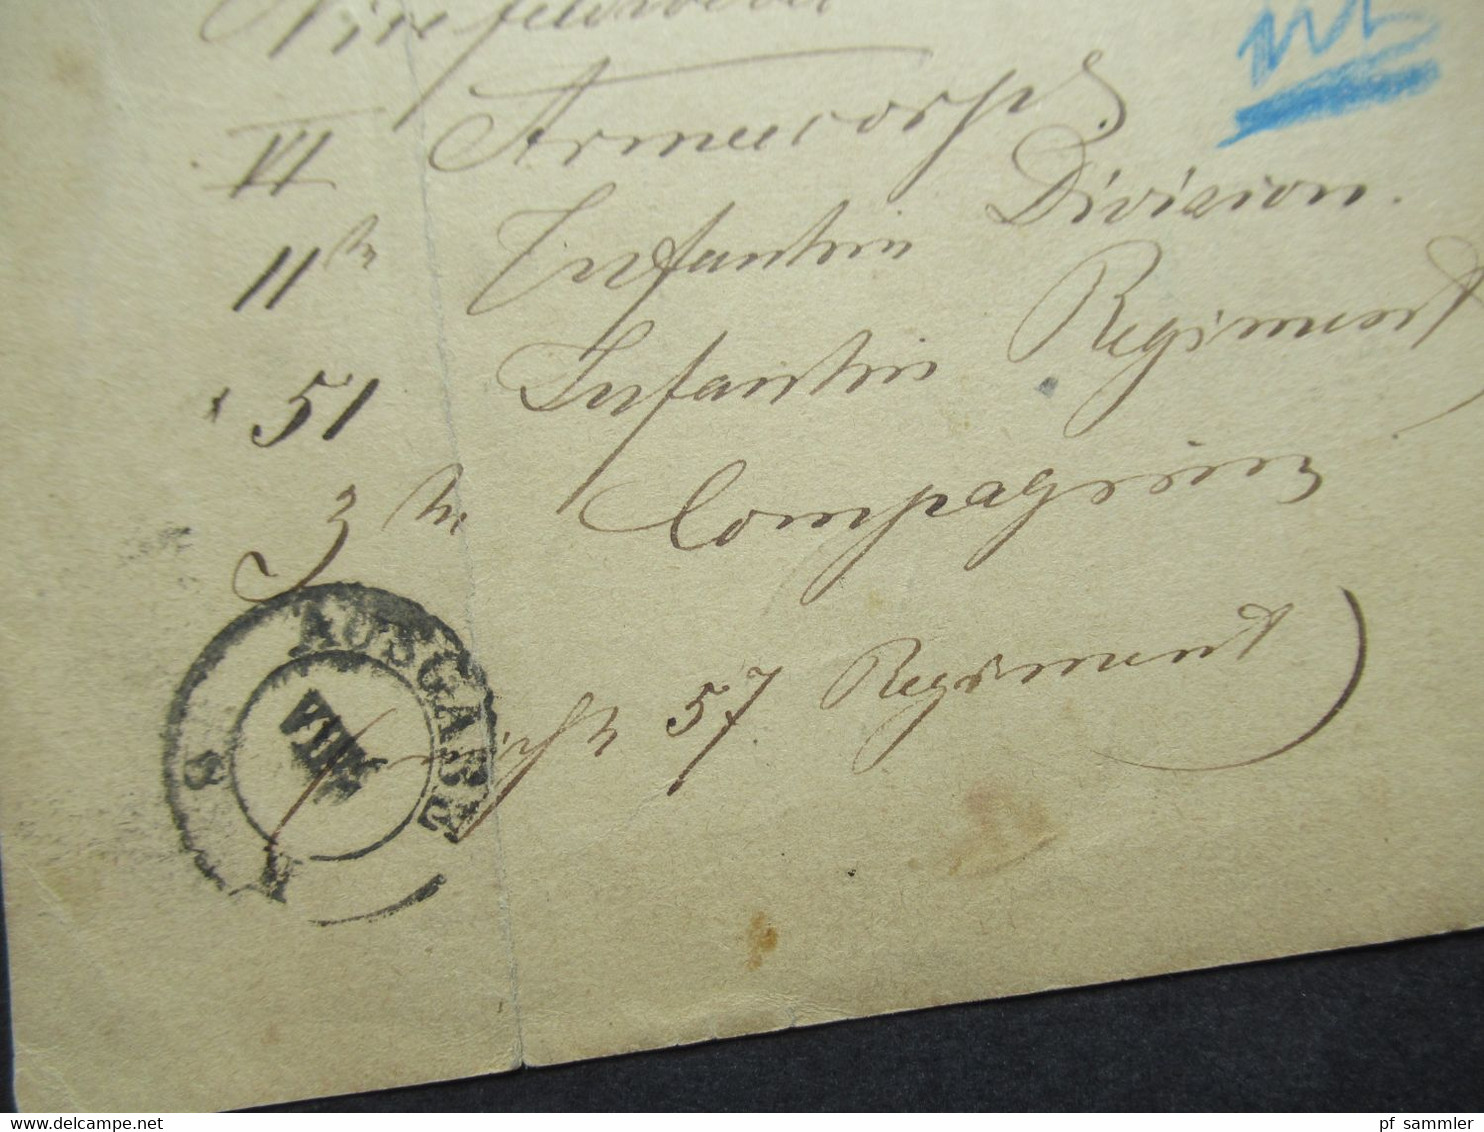 Vicefeldwebel
VI Armeecorps
11te Infanterie Division.
51 Infanterie Regiment
3te Compagnie
(nicht 57 Regiment)
AUSGABE
VIII
8
N
www.delcampe.net
pf_sammler